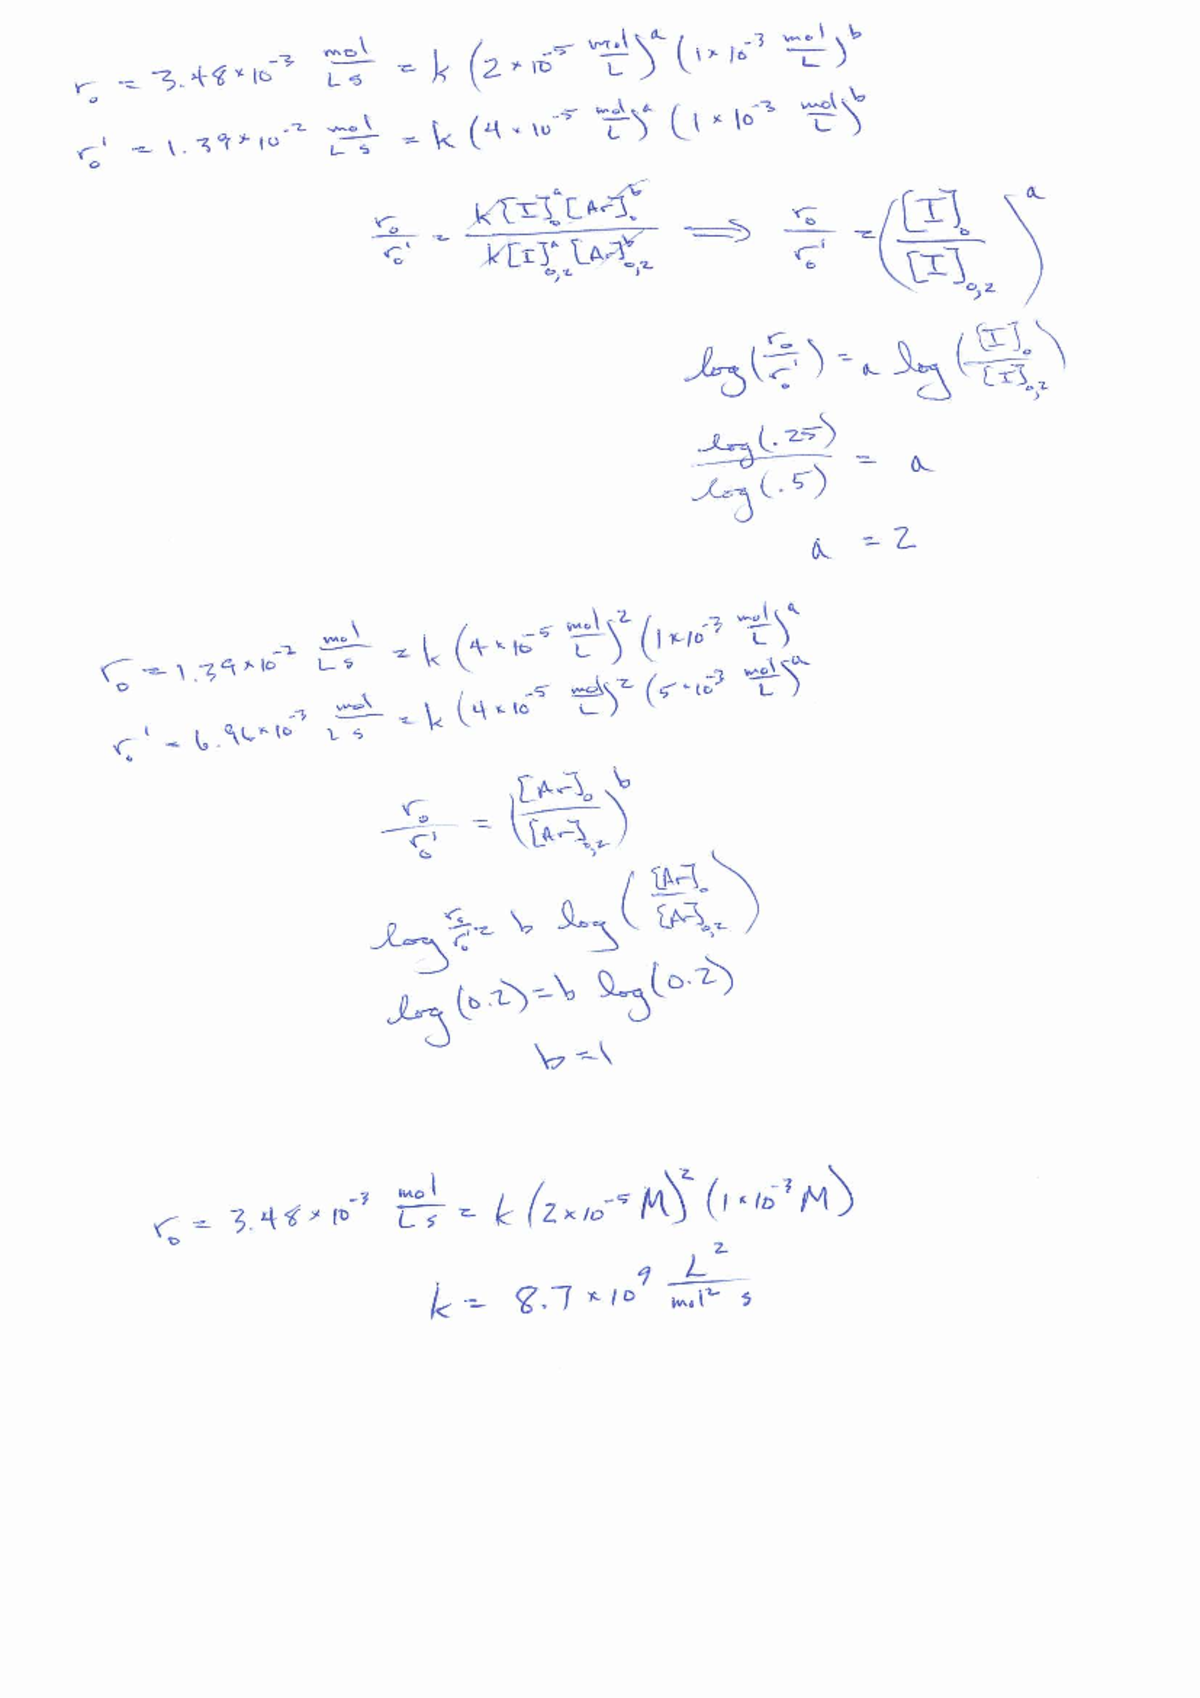 r₀ = 3.48×10⁻³ mol/L s = k (2×10⁻⁵ mol/L)ᵃ (1×10⁻³ mol/L)ᵇ
r₀' = 1.39×10⁻² mol/L s = k (4×10⁻⁵ mol/L)ᵃ (1×10⁻³ mol/L)ᵇ
r₀/r₀' = k[I]₀ᵃ[Ar]₀ᵇ / k[I]₀,₂ᵃ[Ar]₀,₂ᵇ ⟹ r₀/r₀' = ([I]₀/[I]₀,₂)ᵃ
log(r₀/r₀') = a log([I]₀/[I]₀,₂)
log(.25)/log(.5) = a
a = 2
r₀ = 1.39×10⁻² mol/L s = k (4×10⁻⁵ mol/L)² (1×10⁻³ mol/L)ᵃ
r₀' = 6.96×10⁻³ mol/L s = k (4×10⁻⁵ mol/L)² (5·10⁻³ mol/L)ᵃ
r₀/r₀' = ([Ar]₀/[Ar]₀,₂)ᵇ
log r₀/r₀' = b log([Ar]₀/[Ar]₀,₂)
log(0.2) = b log(0.2)
b = 1
r₀ = 3.48×10⁻³ mol/L s = k (2×10⁻⁵ M)² (1×10⁻³ M)
k = 8.7×10⁹ L²/mol² s